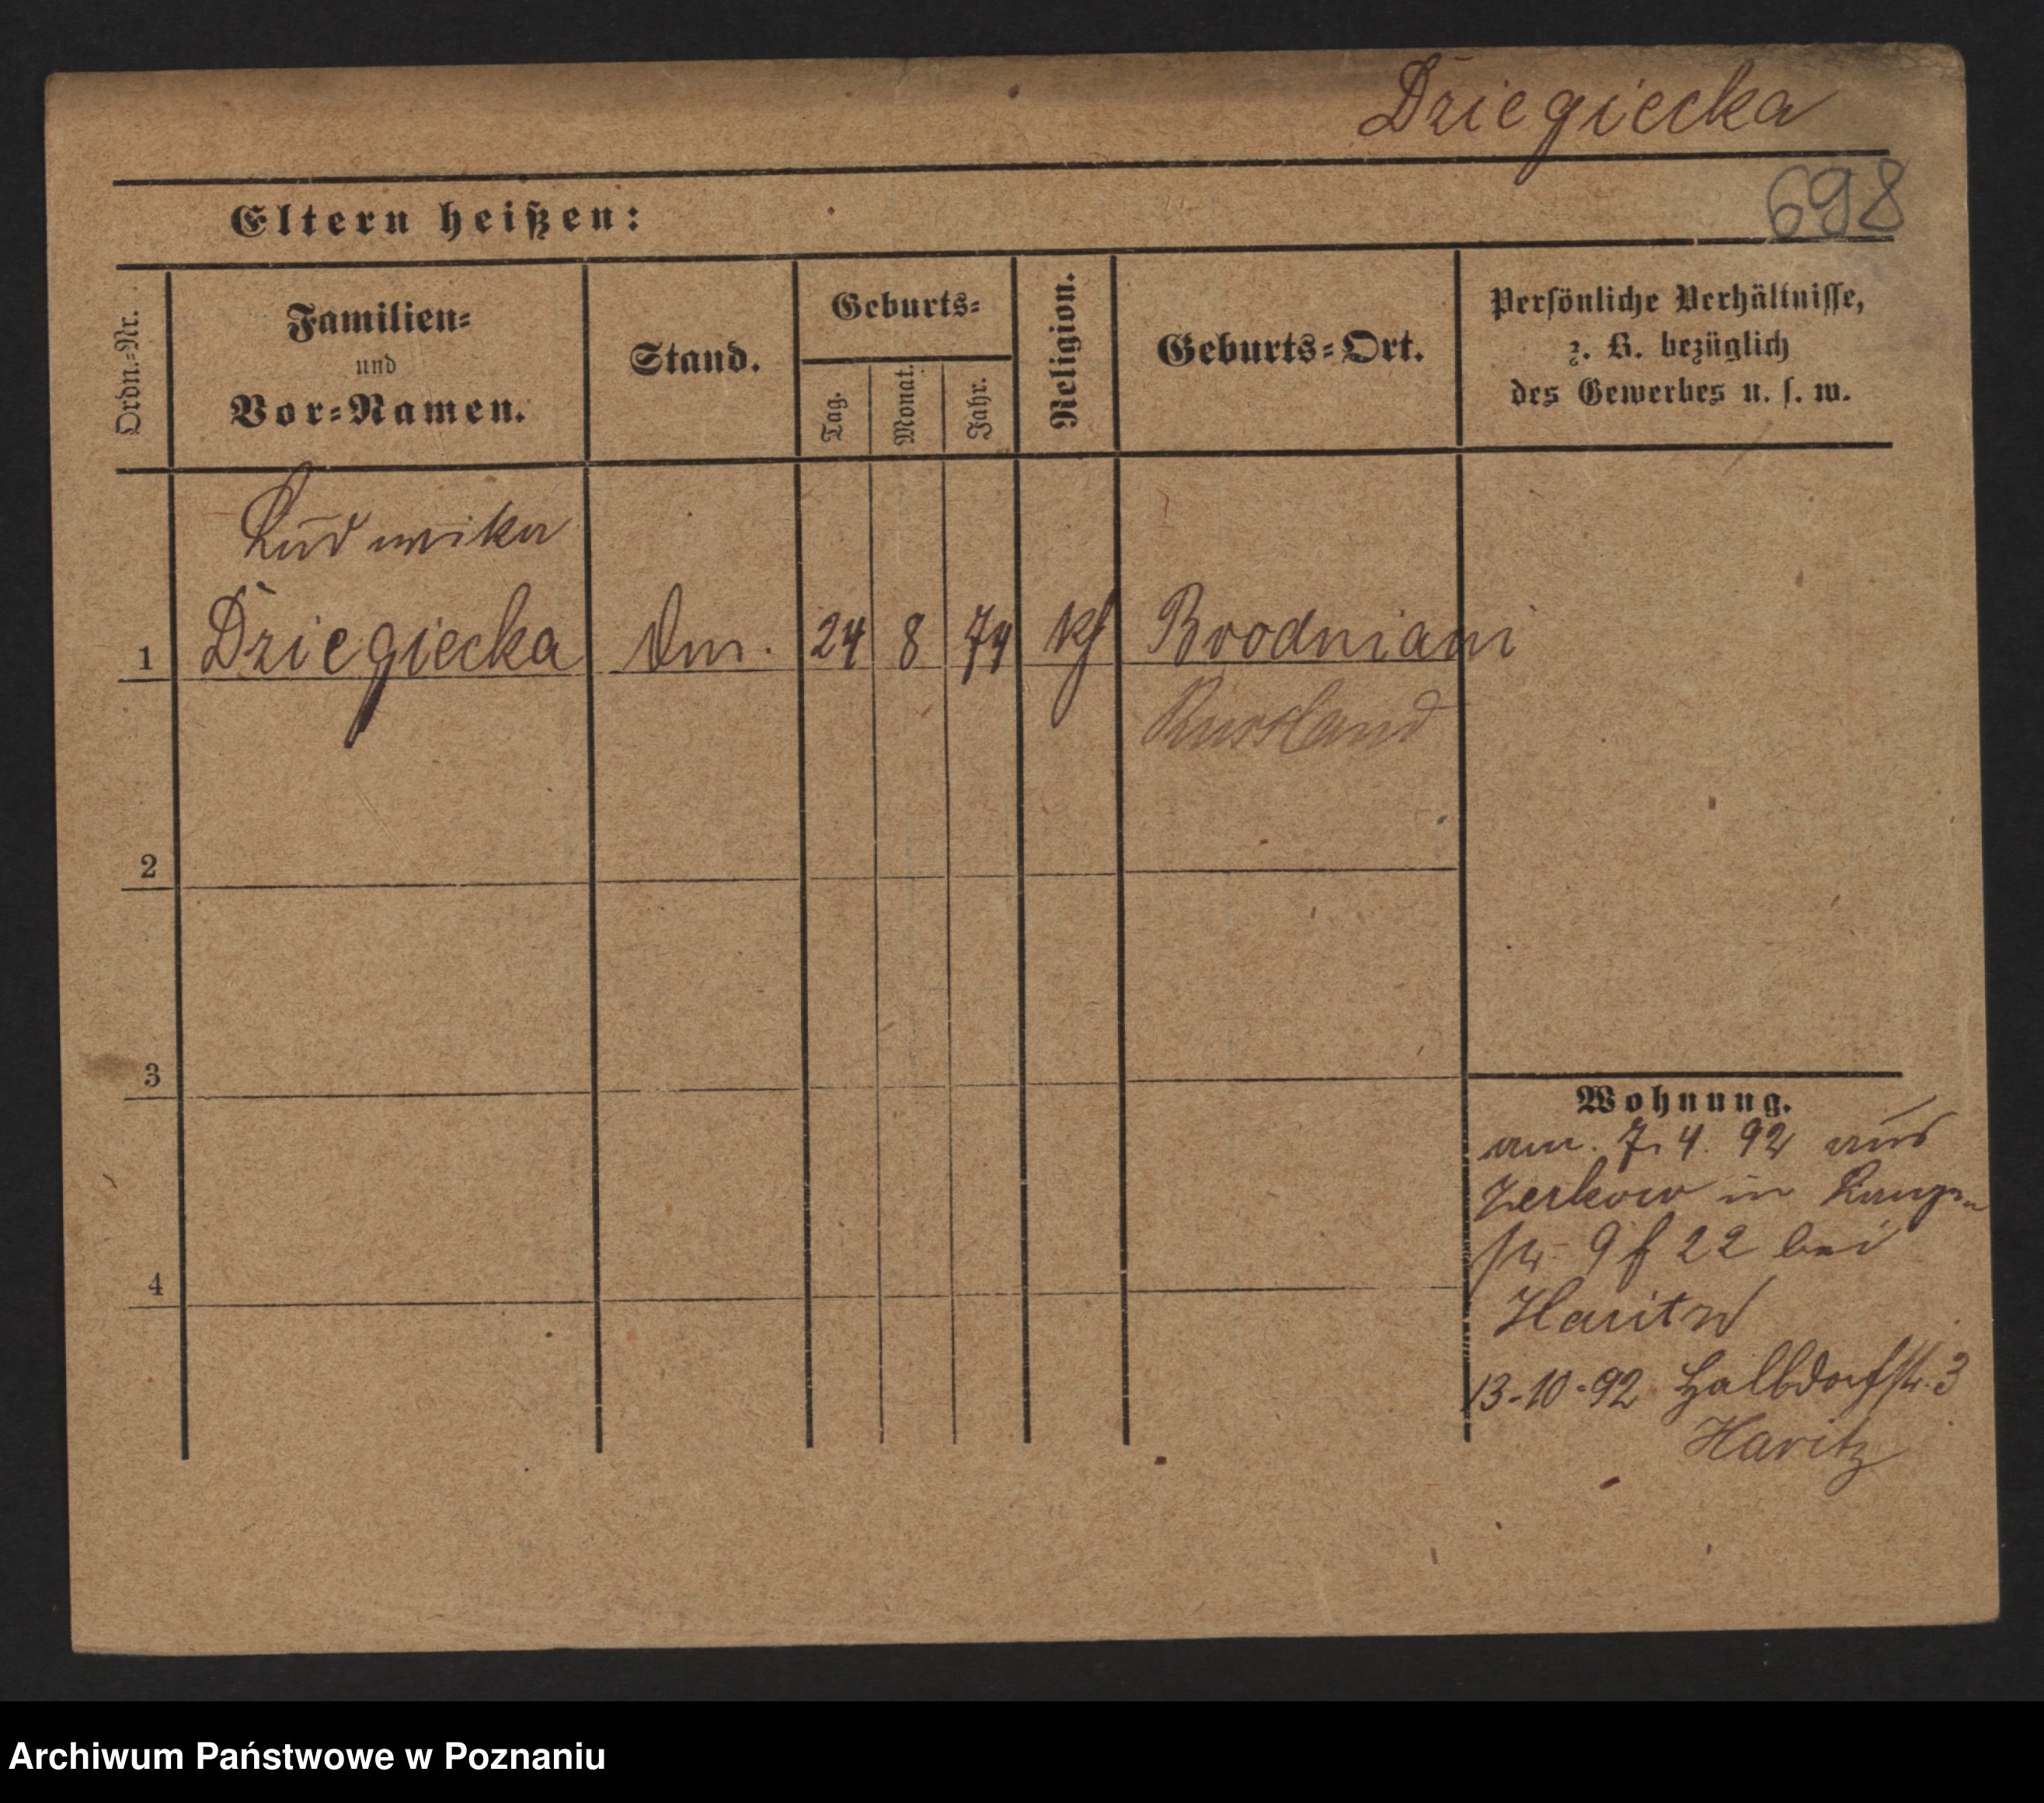 Dziegiecka
698
Eltern heißen:
Ordn.-Nr.
Familien-
und
Vor-Namen.
Stand.
Geburts-
Tag.
Monat.
Jahr.
Religion.
Geburts-Ort.
Persönliche Verhältnisse,
z. B. bezüglich
des Gewerbes u. s. w.
Ludwika
1 Dziegiecka 24 8 74 Brodniani
Russland
2
3
4
Wohnung.
am. 7. 4. 92 aus
Zerkow in
str. 9 f 22 bei
Haritz
13-10-92 Halbdorfstr. 3
Haritz
Archiwum Państwowe w Poznaniu